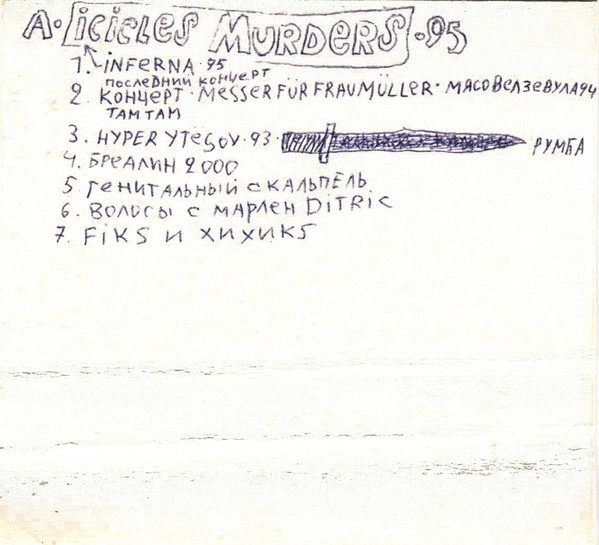 A· icicles MURDERS ·95
1. iNFERNA·95
последний концерт
2. концерт·MESSER FÜR FRAU MÜLLER·МЯСО ВЕЛЗЕВУЛА 94
ТАМТАМ
3. HYPER УТЕSОV·93· РУМБА
4. БРЕАЛИН 2000
5 ГЕНИТАЛЬНЫЙ СКАЛЬПЕЛЬ
6. ВОЛОСЫ С МАРЛЕН DiTRIC
7. FiKS И ХИХИКS